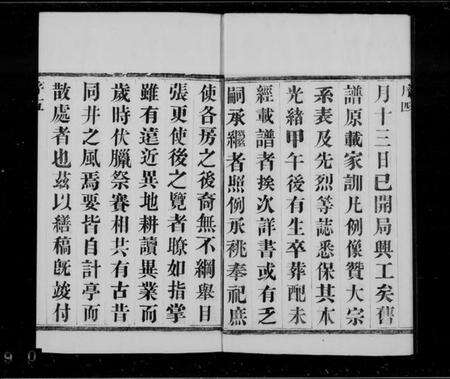 月十三日已開局興工矣舊
譜原載家訓凡例像贊大宗
系表及先烈等誌悉保其本
光緒甲午後有生卒葬配未
經載譜者挨次詳書或有乏
嗣承繼者照例承祧奉祀庶
使各房之後裔無不綱舉目
張更使後之覽者瞭如指掌
雖有遠近異地耕讀異業而
歲時伏臘祭賽相共有古昔
同井之風焉要皆自計亭而
散處者也茲以繕稿旣竣付
序四
序五
9 0